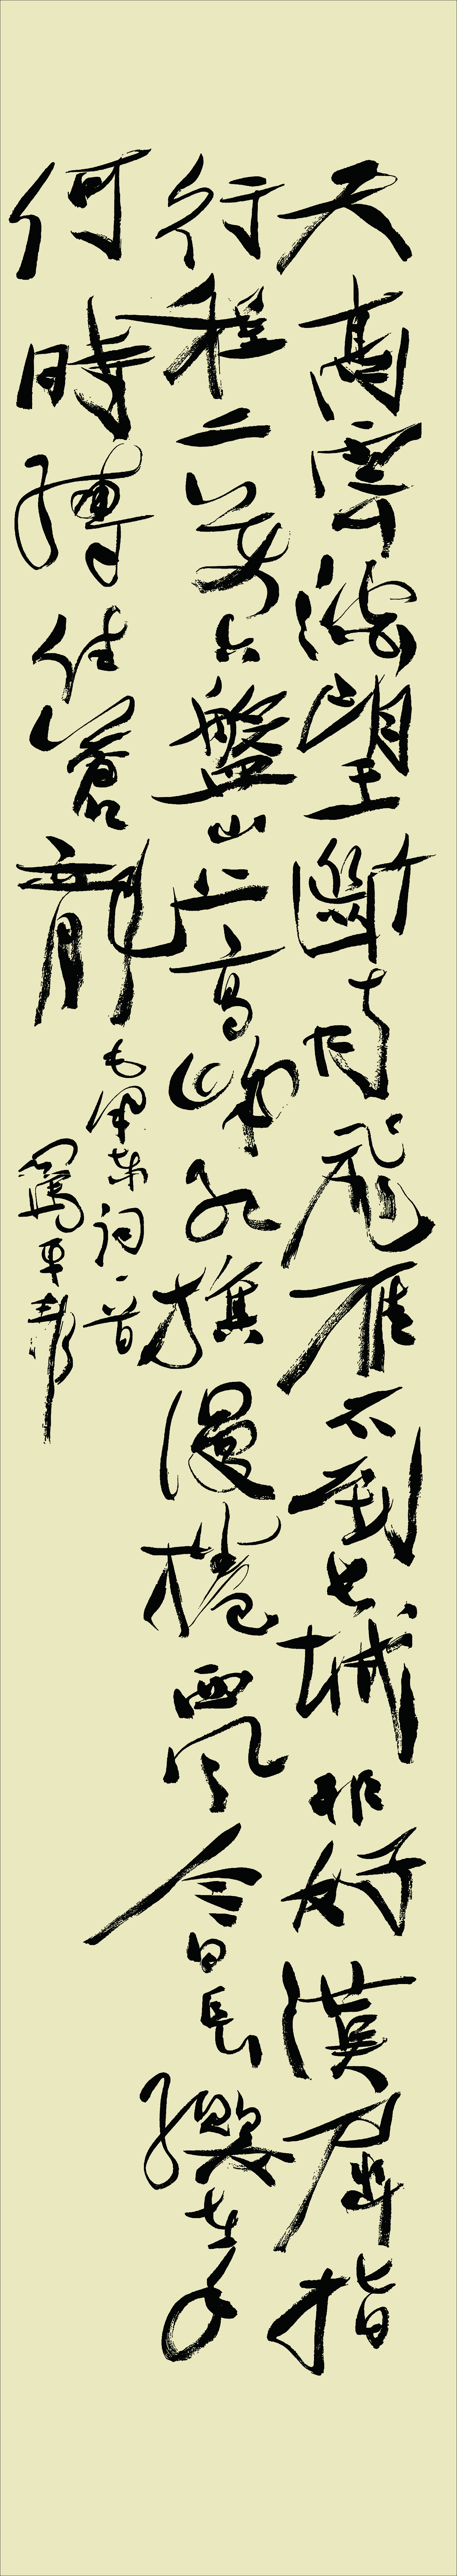 天高雲淡望斷南飛雁不到長城非好漢屈指
行程二萬六盤山上高峰紅旗漫捲西風今日長纓在手
何時縛住蒼龍
毛澤東詞一首
平